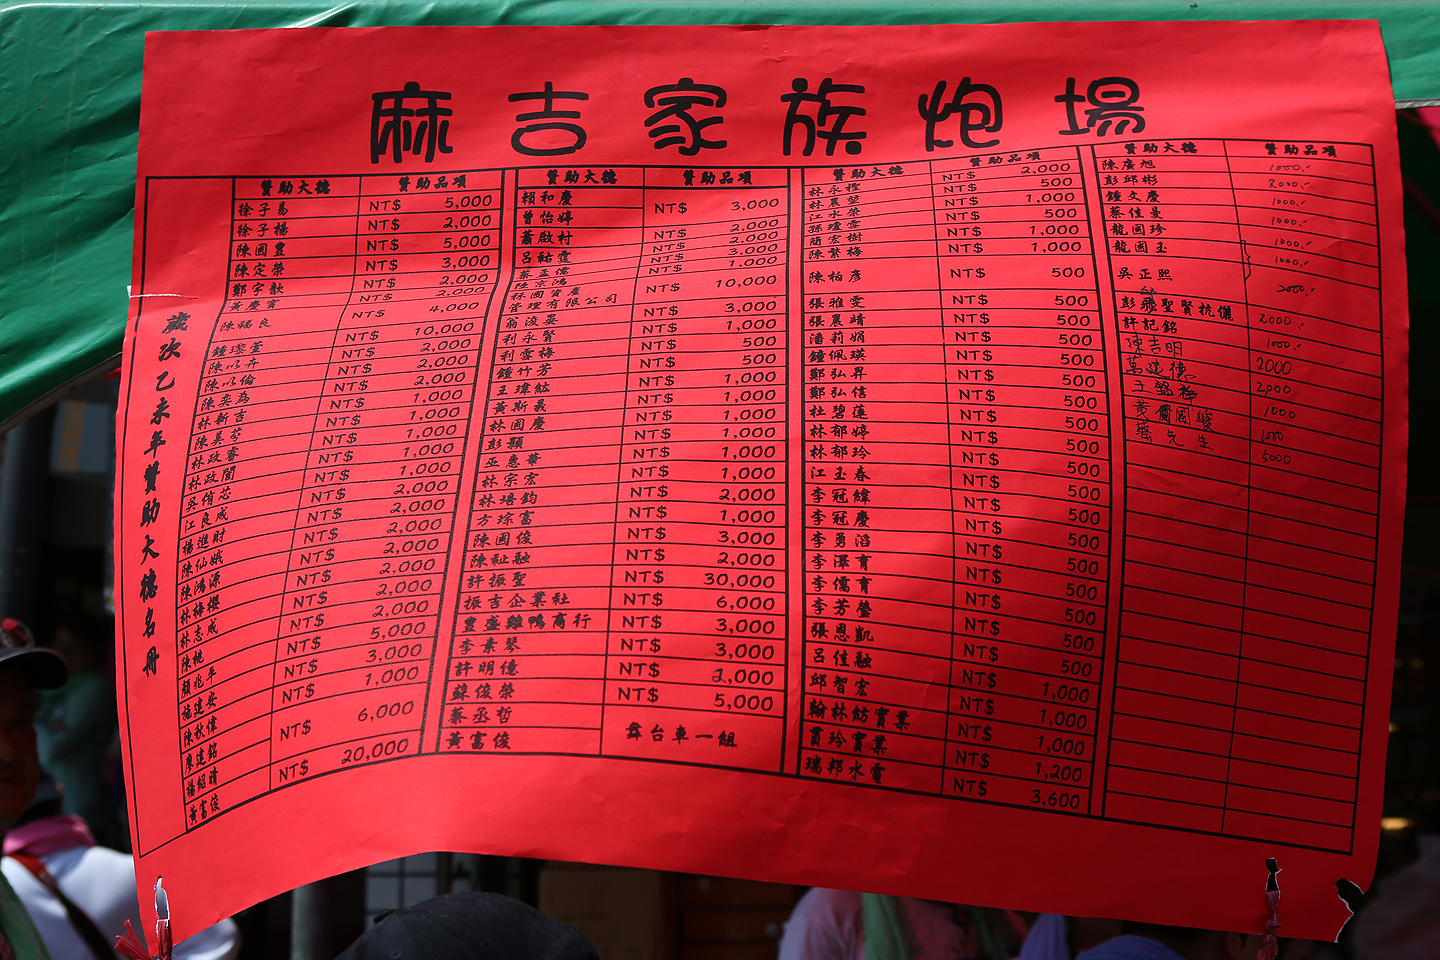 麻吉家族炮場
歲次乙未年贊助大德名冊
贊助大德 贊助品項
徐子易 NT$ 5,000
徐子揚 NT$ 2,000
陳國豐 NT$ 5,000
陳定榮 NT$ 3,000
鄭宇歆 NT$ 2,000
黃慶賓 NT$ 2,000
陳福良 NT$ 4,000
鍾璨萱 NT$ 10,000
陳以卉 NT$ 2,000
陳以倫 NT$ 2,000
陳奕為 NT$ 2,000
林新吉 NT$ 1,000
陳美琴 NT$ 1,000
林政睿 NT$ 1,000
林政閤 NT$ 1,000
吳侑芯 NT$ 1,000
江良成 NT$ 2,000
楊進財 NT$ 2,000
陳仙娥 NT$ 2,000
陳鴻源 NT$ 2,000
林梅櫻 NT$ 2,000
林志成 NT$ 2,000
陳桃 NT$ 5,000
顏兆平 NT$ 3,000
施建安 NT$ 1,000
陳秋偉
廖建銘 NT$ 6,000
楊紹晴
黃富俊 NT$ 20,000
贊助大德 贊助品項
賴和慶 NT$ 3,000
曾怡婷
蕭啟村 NT$ 2,000
呂祐霆 NT$ 2,000
蔡孟儒 NT$ 3,000
陸京鴻 NT$ 1,000
林園資產 NT$ 10,000
管理有限公司
翁浚晏 NT$ 3,000
利永賢 NT$ 1,000
利雪梅 NT$ 500
鍾竹芳 NT$ 500
王瑋紘 NT$ 1,000
黃斯羲 NT$ 1,000
林國慶 NT$ 1,000
彭顯 NT$ 1,000
巫惠華 NT$ 1,000
林宗宏 NT$ 1,000
林培鈞 NT$ 2,000
方琮富 NT$ 1,000
陳國俊 NT$ 3,000
陳祉融 NT$ 2,000
許振聖 NT$ 30,000
振吉企業社 NT$ 6,000
豐盛雞鴨商行 NT$ 3,000
李素琴 NT$ 3,000
許明億 NT$ 2,000
蘇俊榮 NT$ 5,000
蔡丞哲 舞台車一組
黃富俊
贊助大德 贊助品項
林永樫 NT$ 2,000
林晨堃 NT$ 500
江永榮 NT$ 1,000
孫瓊雲 NT$ 500
簡宏樹 NT$ 1,000
陳繁梅 NT$ 1,000
陳柏彥 NT$ 500
張雅雯 NT$ 500
張晨靖 NT$ 500
潘莉娟 NT$ 500
鍾佩瑛 NT$ 500
鄭弘昇 NT$ 500
鄭弘信 NT$ 500
杜碧蓮 NT$ 500
林郁婷 NT$ 500
林郁玲 NT$ 500
江玉春 NT$ 500
李冠緯 NT$ 500
李冠慶 NT$ 500
李勇滔 NT$ 500
李澤育 NT$ 500
李儒育 NT$ 500
李芳瑩 NT$ 500
張恩凱 NT$ 500
呂佳融 NT$ 1,000
邱智宏 NT$ 1,000
翰林舫實業 NT$ 1,000
貫玲實業 NT$ 1,200
瑞邦水電 NT$ 3,600
贊助大德 贊助品項
陳廣旭 1000.-
彭邱彬 2000.-
鍾文慶 1000.-
蔡佳曼 1000.-
龍國珍 1000.-
龍國玉 1000.-
吳正熙 2000.-
彭 聖賢杭儀 2000.-
許記銘 1000.-
陳吉明 2000
建德 2000
王銘 1000
黃 1000
蔡先生 5000